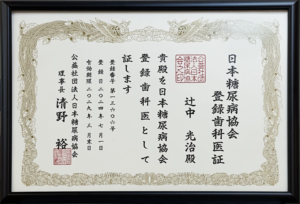 日本糖尿病協会
登録歯科医証
辻中 光治殿
貴殿を日本糖尿病協会
登録歯科医として
証します
登録番号 第一三六〇六号
登録日 二〇二四年 七月一日
有効期限 二〇二九年 三月末日
公益社団法人日本糖尿病協会
理事長 清野 裕